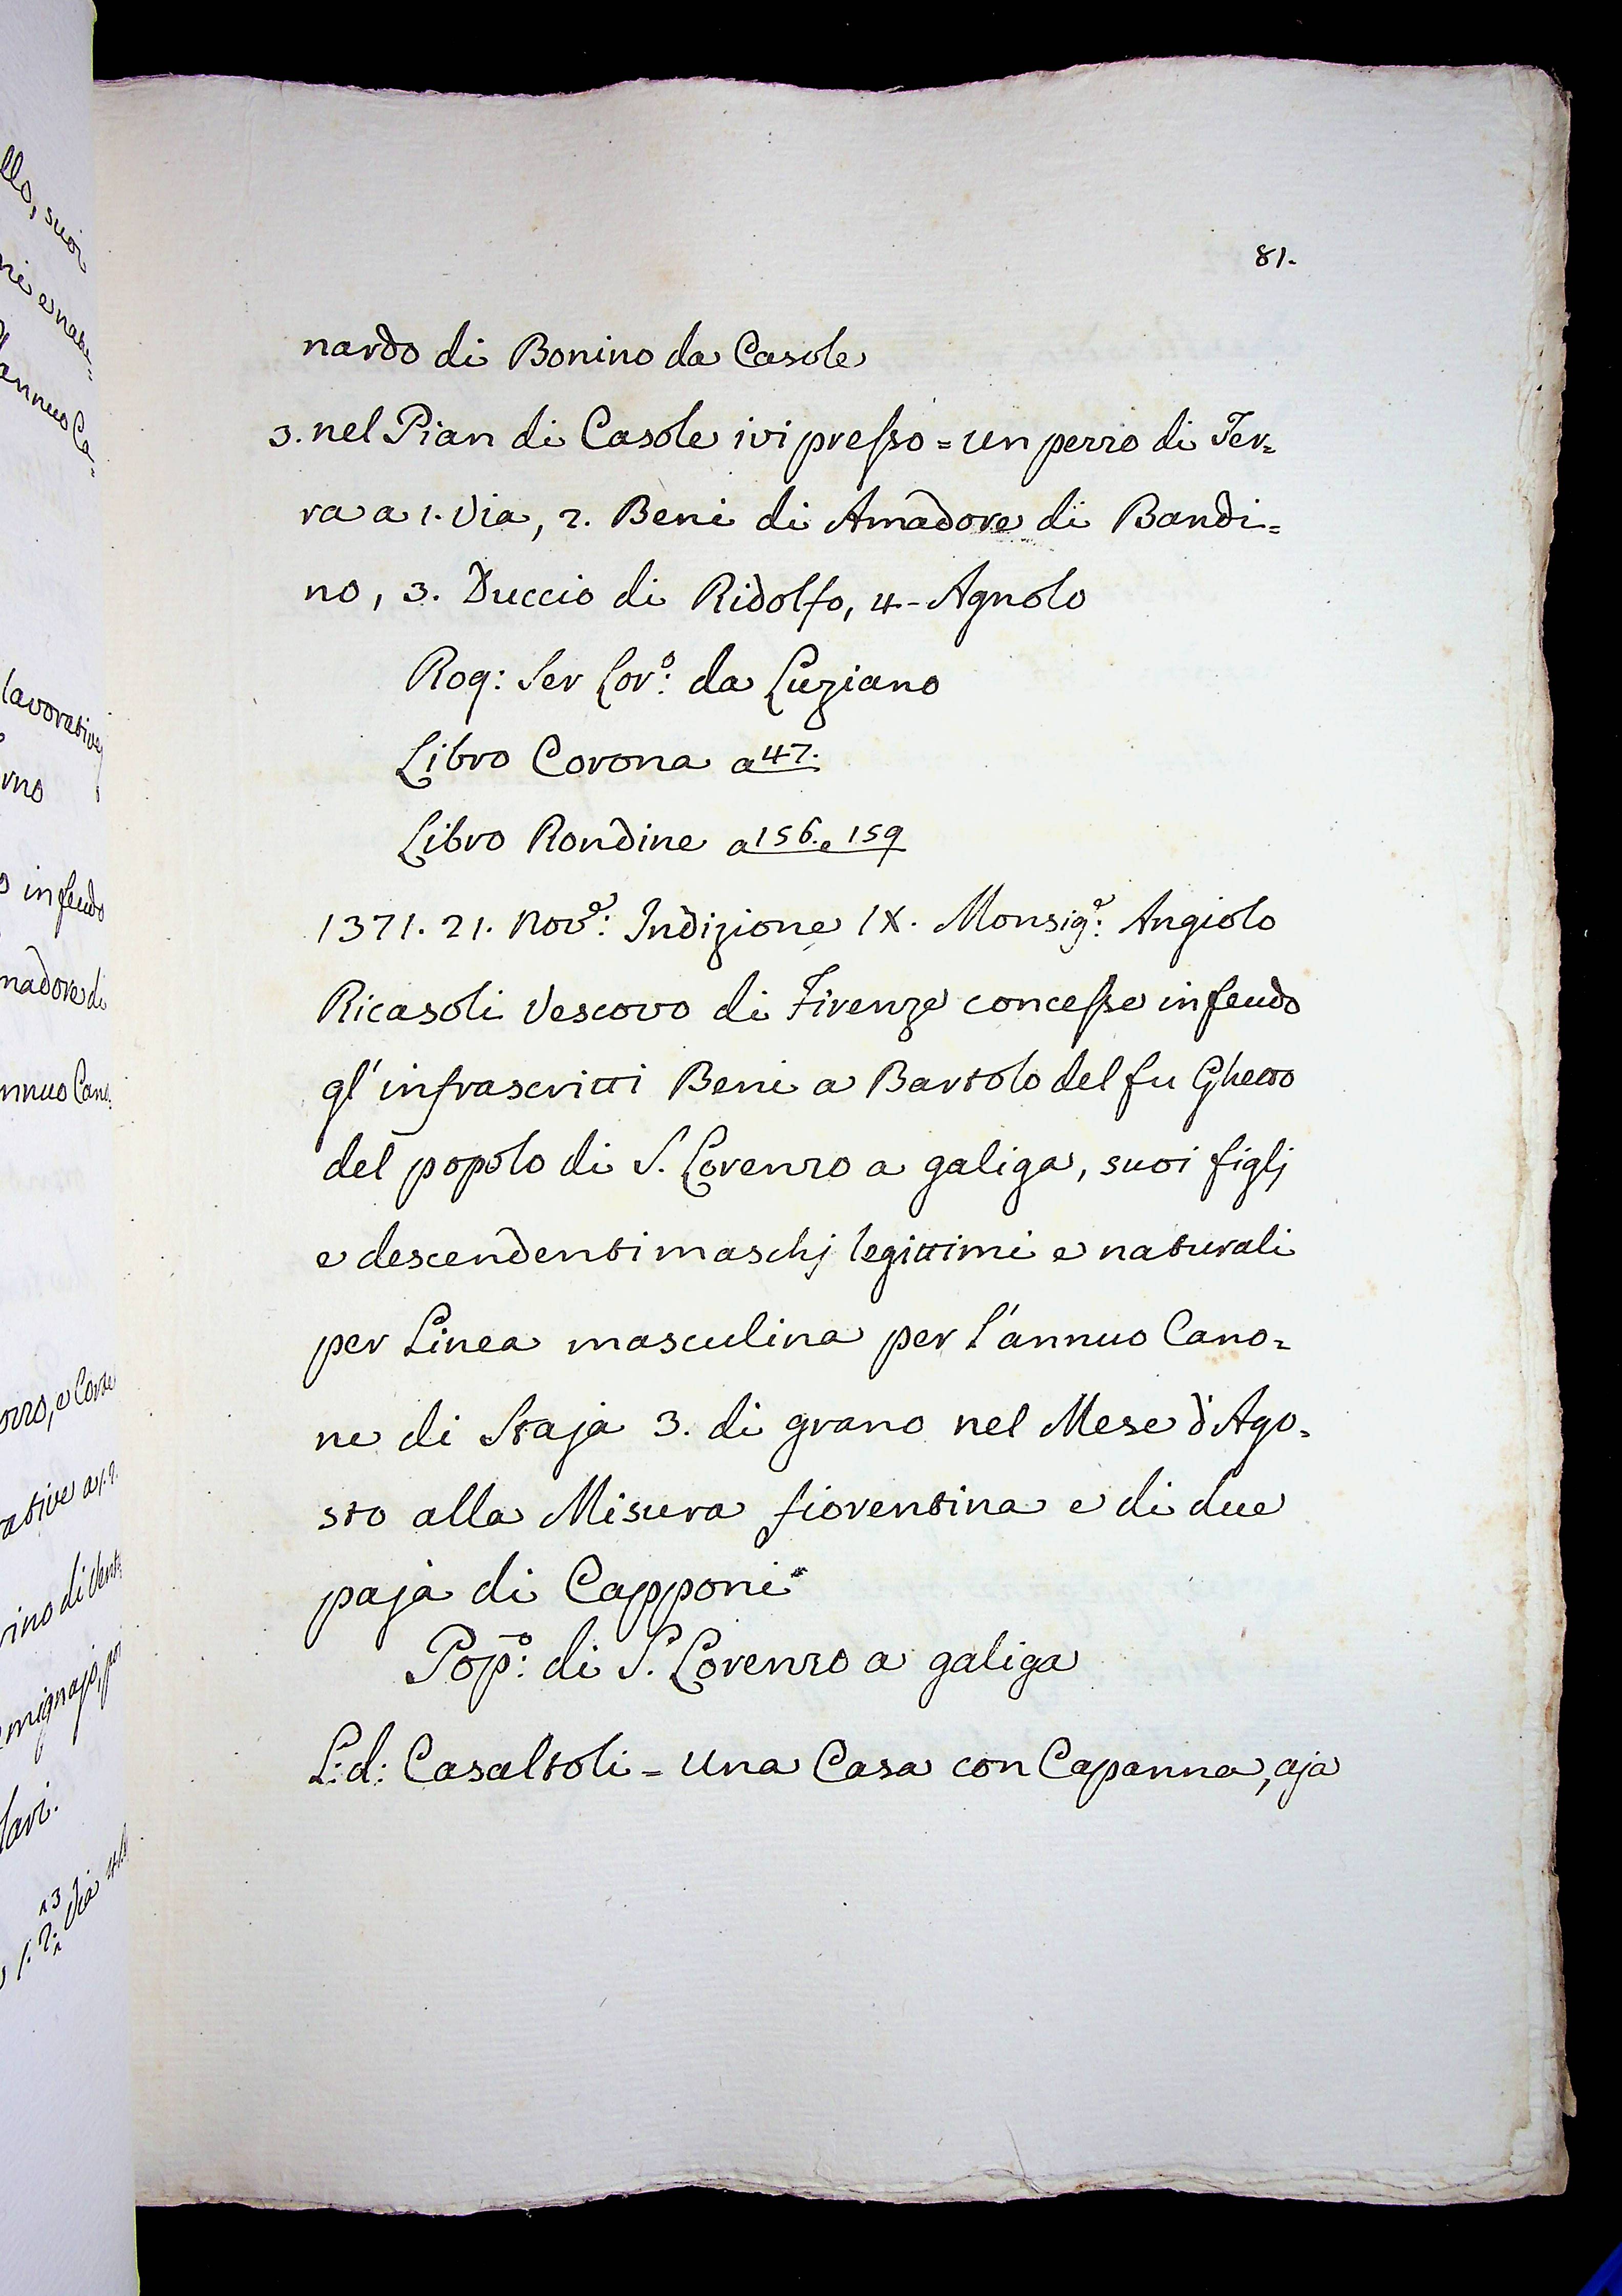 81.
nardo di Bonino da Casole
3. nel Pian di Casole ivi presso = un pezzo di Ter=
ra a 1. Via, 2. Beni di Amadore di Bandi=
no, 3. Duccio di Ridolfo, 4 - Agnolo
Rog: Ser Lor.º: da Luziano
Libro Corona a 47.
Libro Rondine a 156. e 159
1371. 21. Nov.e: Indizione IX. Monsig.e: Angiolo
Ricasoli Vescovo di Firenze concesse in feudo
gl'infrascritti Beni a Bartolo del fu Ghetto
del popolo di S. Lorenzo a galiga, suoi figlj
e descendenti maschj legittimi e naturali
per Linea masculina per l'annuo Cano=
ne di Staja 3. di grano nel Mese d'Ago=
sto alla Misura fiorentina e di due
paja di Capponi
Pop.º: di S. Lorenzo a galiga
L: d: Casaltoli = Una Casa con Capanna, aja
llo, suoi
annuo Ca=
lavorative
rno
in feudo
madore di
nnuo Can:
ozzo, e Corte
rative a 1. 2.
rino di
mignajo,
lari.